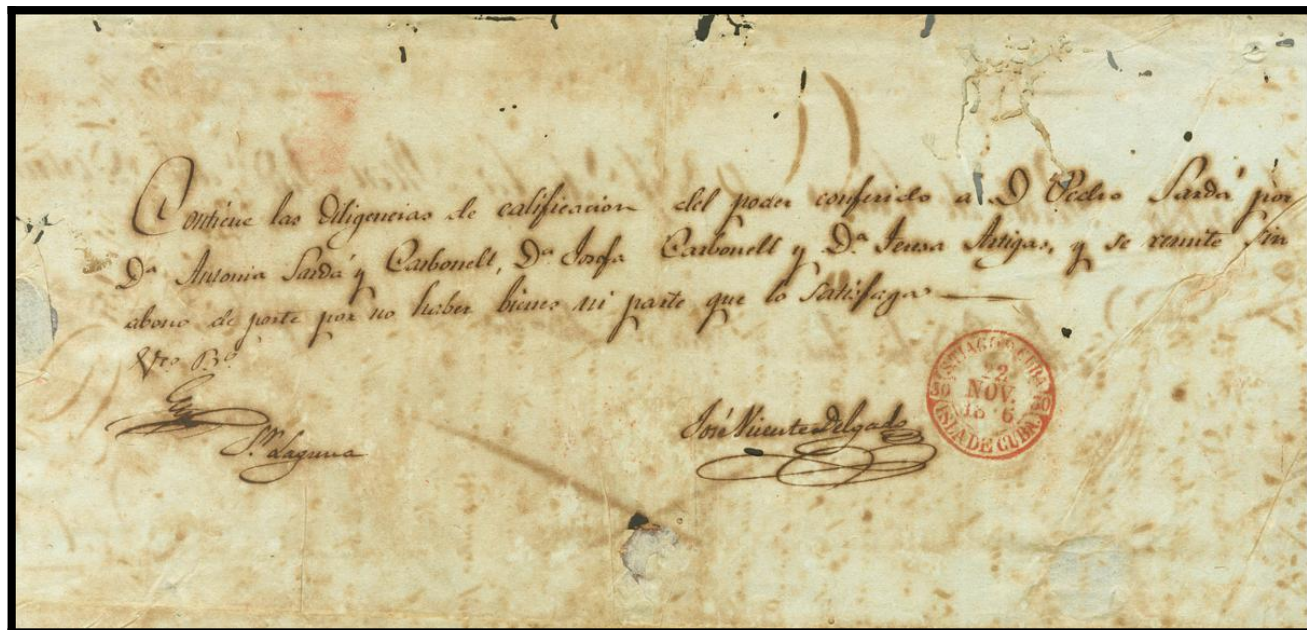 Contiene las diligencias de calificacion del poder conferido a D Pedro Sardá por
Dª Antonia Sardá y Carbonell, Dª Josefa Carbonell y Dª Teresa Artigas, y se remite sin
abono de porte por no haber bienes ni parte que lo satisfaga
Vto Bº
Sr. Laguna
José Vicente Delgado
22
NOV.
ISLA DE CUBA